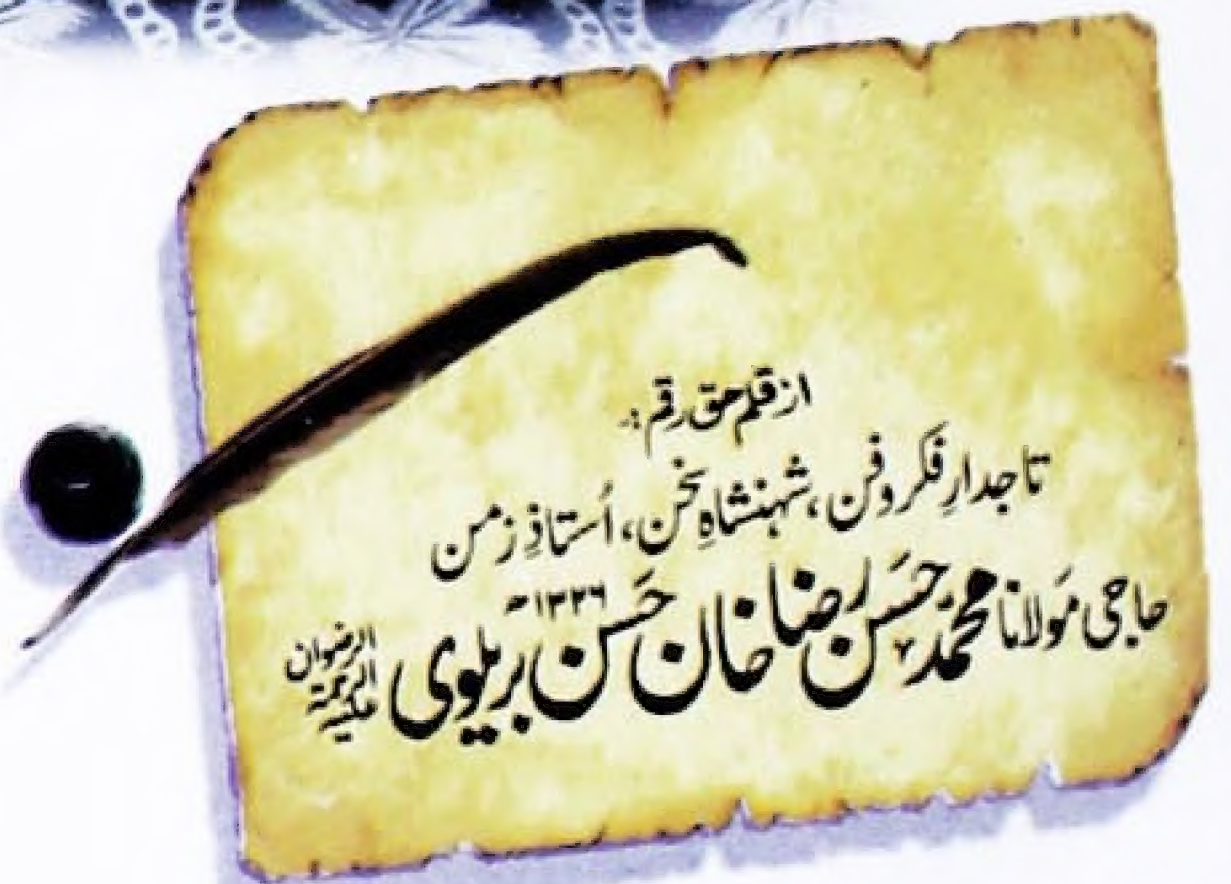 از قلم حق رقم :۔
تاجدارِ فکر و فن ، شہنشاہِ سخن، اُستاذِ زمن
حاجی مَولانا محمّد حَسَن رضا خان حَسَن بریلوی علیہ الرحمۃ الرضوان
۱۳۲۶ھ